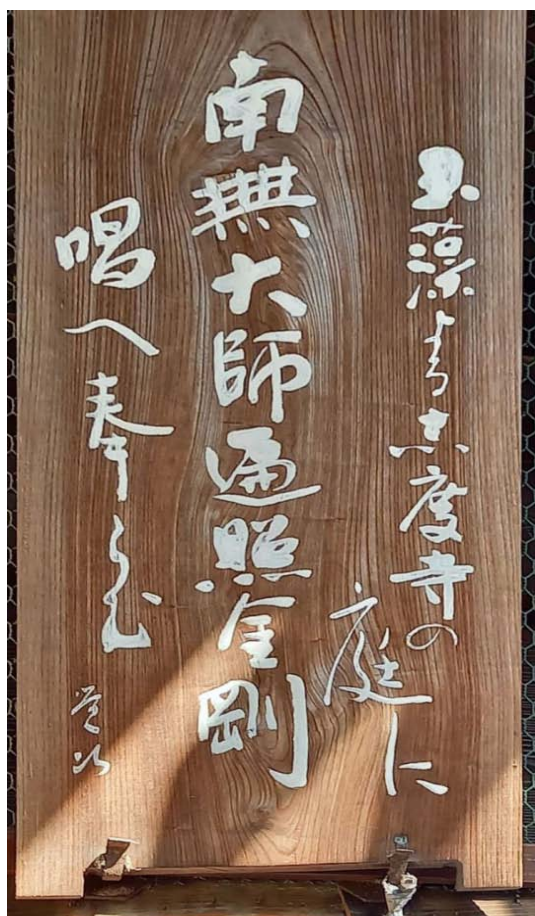 玉藻よる志度寺の庭に
南無大師遍照金剛
唱へ奉らむ